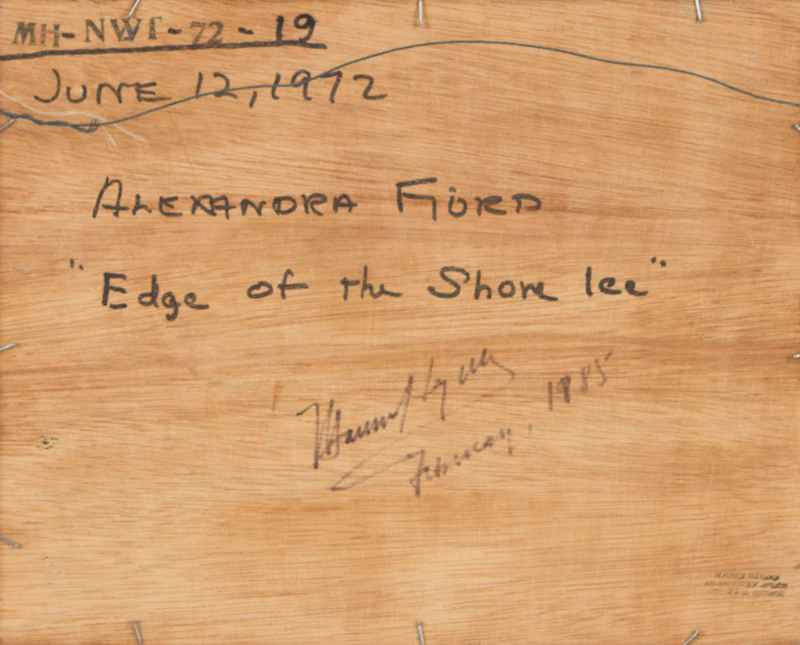 MH-NWT-72-19
JUNE 12, 1972
ALEXANDRA FJORD
"Edge of the Shore Ice"
February, 1985